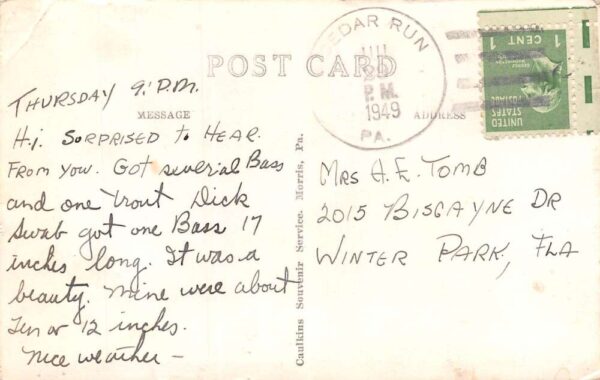 CEDAR RUN
JUL
P.M.
1949
PA.
1 CENT 1
UNITED STATES POSTAGE
POST CARD
MESSAGE
ADDRESS
THURSDAY 9:P.M.
Hi. SURPRISED to HEAR.
From you. Got severial Bass
and one trout Dick
Swab got one Bass 17
inches long. It was a
beauty. Mine were about
Ten or 12 inches.
Nice weather -
Caulkins Souvenir Service. Morris, Pa.
MRS A.E. TOMB
2015 BISCAYNE DR
WINTER PARK, FLA